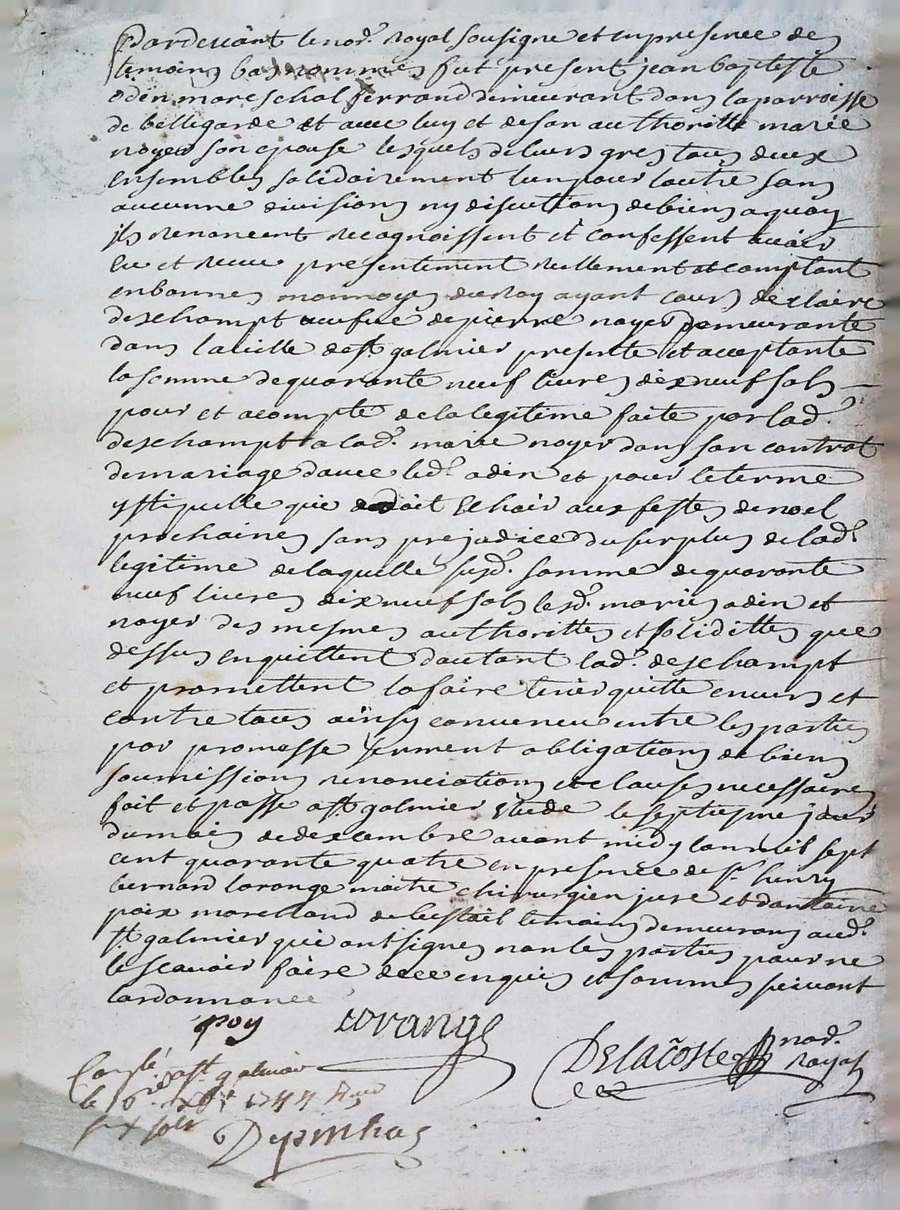 Pardevant le nore. royal sousigne et en presence des
temoins bas nommés fut present jean baptiste
odin mareschal ferrand demeurant dans la parroisse
de bellegarde et avec luy et de son authoritté marie
noyer son epouse lesquels de leurs gres tous deux
ensembles solidairement lun pour lautre sans
aucunne divisions ny discutions de biens a quoy
ils renoncent recognoissent et confessent avoir
eu et receu presentement reellement et comptant
en bonnes monnoyes du roy ayant cours de claire
deschampt veufve de pierre noyer demeurante
dans la ville de st galmier presente et acceptante
la somme de quarante neuf livres dix neuf sols
pour et acompte de la legitime faite par lad.
deschampt a lad. marie noyer dans son contrat
de mariage davec led. odin et pour le terme
y stipulle que doit Echoir aux festes de noel
prochaines sans prejudice du surplus de lad.
legitime de laquelle susd. somme de quarante
neuf livres dix neuf sols lesd. mariés odin et
noyer des mesmes authorittés et solidittés que
dessus en quittent dautant lad. deschampt
et promettent la faire tenir quitte envers et
contre tous ainsy convenu entre les parties
par promesse serment obligations de biens
soumissions renonciations et clauses necessaires
fait et passé a st galmier Etude le septiesme jour
du mois de dexcembre avant midy lan mil sept
cent quarante quatre en presence de sr. henry
bernard lorange maitre chirurgien juré et dantoine
poix marchand de bestail temoins demeurans aud.
st galmier qui ont signes non les parties pour ne
le scavoir faire de ce enquis et sommés suivant
lordonnance
poy lorange
Delacoste nore. royal
Conllé a st galmier
le xbre 1744 Reçu
six sols